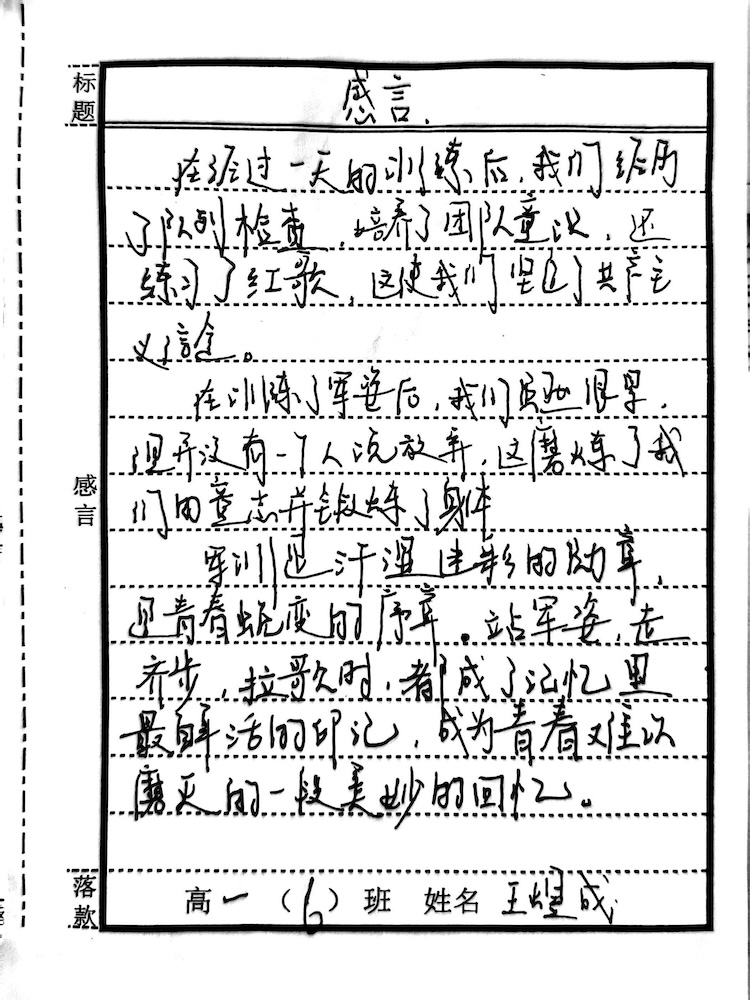 标题
感言.
在经过一天的训练后,我们经历
了队列检查,培养了团队意识,还
练习了红歌,这使我们坚定了共产主
义信念。
在训练了军姿后,我们虽 很累,
但并没有一个人说放弃,这磨炼了我
们的意志并锻炼了身体
军训是汗湿迷彩的勋章,
是青春蜕变的序章。站军姿,走
齐步,拉歌时,都成了记忆里
最鲜活的印记,成为青春难以
磨灭的一段美妙的回忆。
感言
落款
高一(6)班 姓名 王煜成